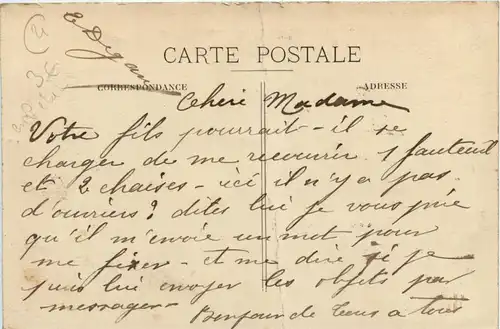 E Degan
3€
CARTE POSTALE
CORRESPONDANCE
ADRESSE
Cheré Madame
Votre fils pourrait-il se
charger de me recouvrir 1 fauteuil
et 2 chaises - ici il n'y a pas
d'ouvriers? dites lui je vous prie
qu'il m'envoie un mot pour
me fixer - et me dire si je
puis lui envoyer les objets par
messager -
Bonjour de tous a tous